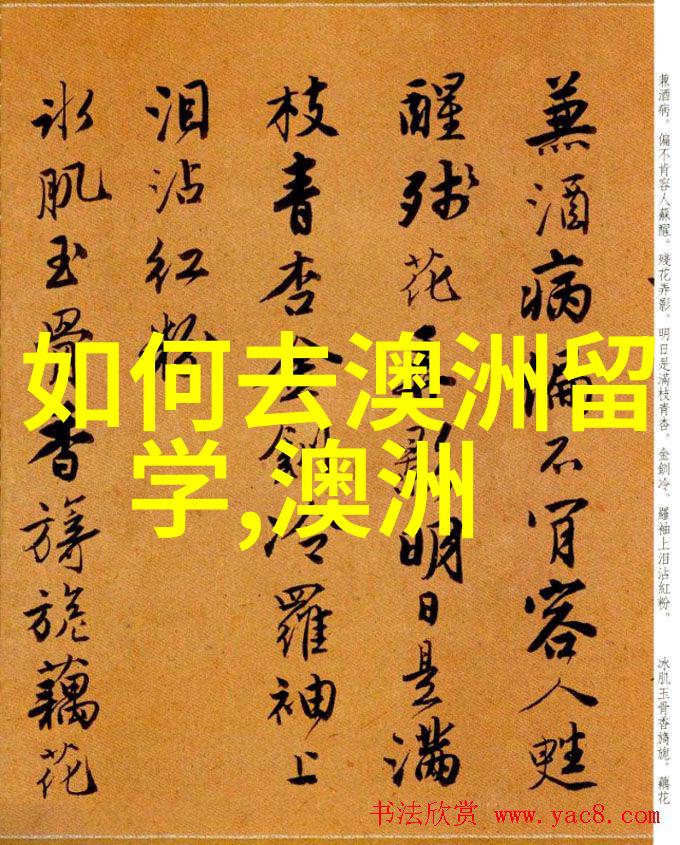 兼酒病偏不肯容人甦
醒残花弄影明日是滿
枝青杏金釧冷羅袖上
泪沾紅粉
冰肌玉骨香旖旎藕花
如何去澳洲留
学,澳洲
兼酒病。偏不肯容人蘇醒。殘花弄影。明日是滿枝青杏。金釧冷。羅袖上泪沾紅粉。
冰肌玉骨香旖旎。藕花
书法欣赏 www.yac8.com